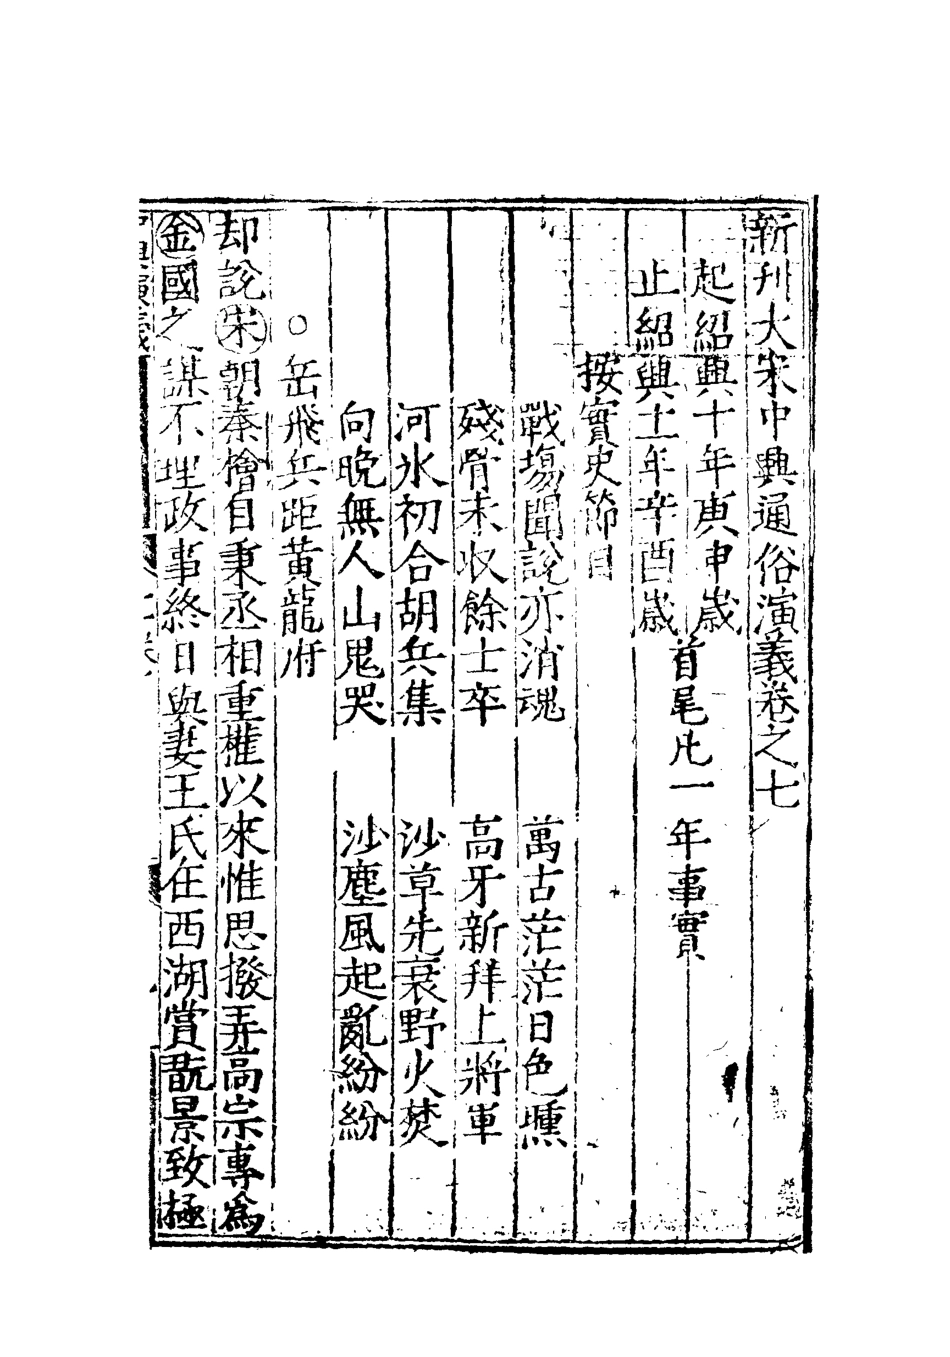 新刊大宋中興通俗演義卷之七
起紹興十年庚申歲
止紹興十一年辛酉歲
首尾凡一年事實
按實史節目
戰塲聞說亦消魂 萬古茫茫日色曛
殘骨未收餘士卒 高牙新拜上將軍
河氷初合胡兵集 沙草先衰野火焚
向晚無人山鬼哭 沙塵風起亂紛紛
○岳飛兵距黃龍府
却說宋朝秦檜自秉丞相重權以來惟思撥弄高宗專為
金國之謀不理政事終日與妻王氏在西湖賞翫景致極